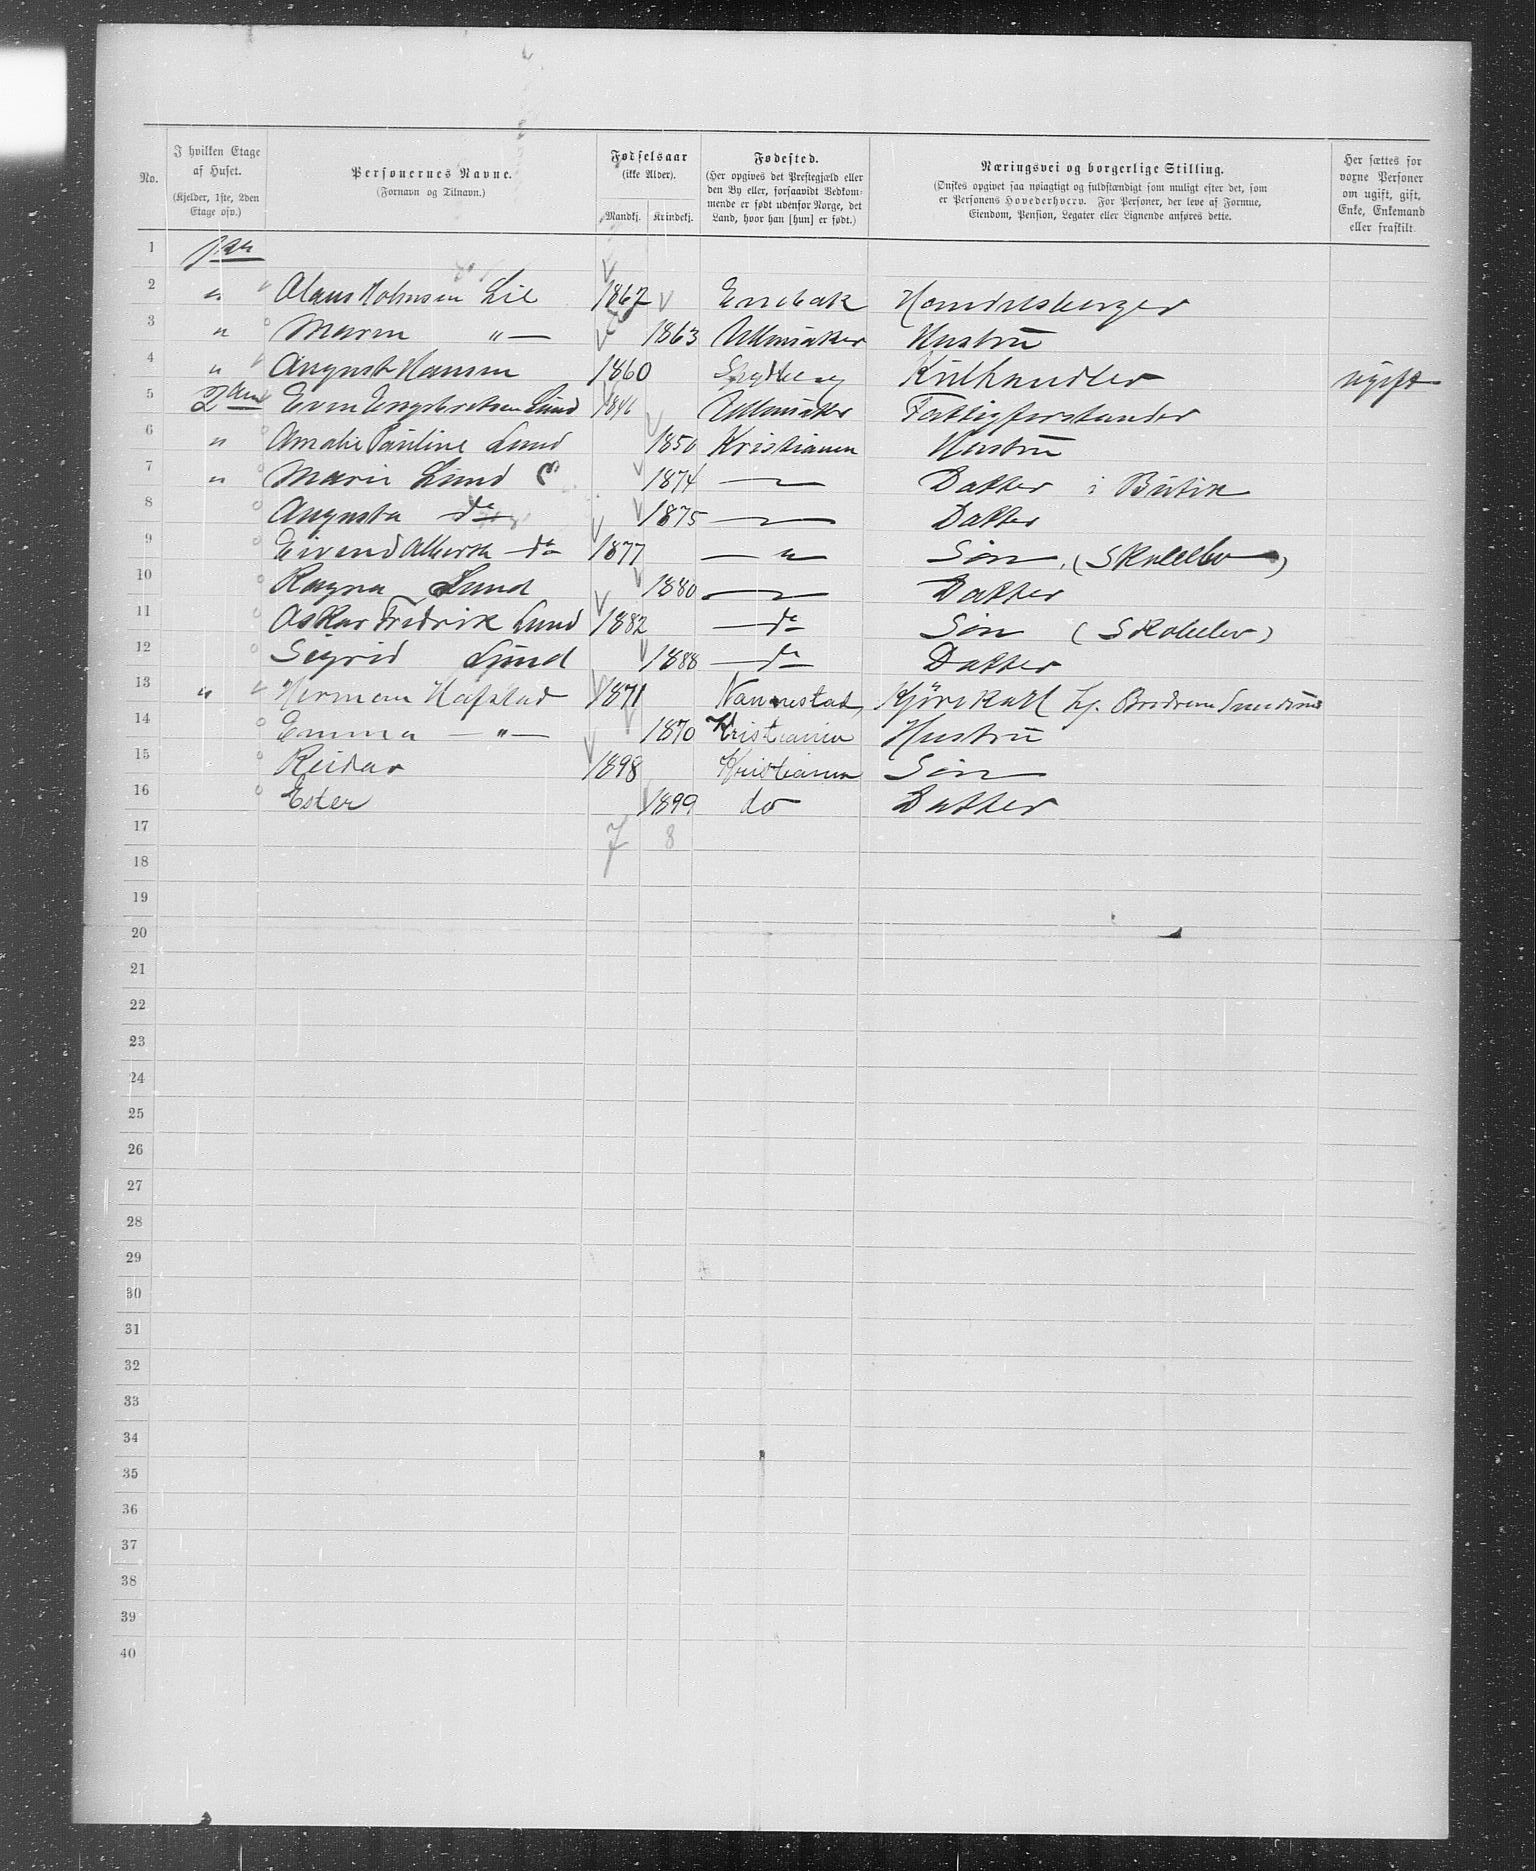 No.
I hvilken Etage af Huset.
(Kjelder, 1ste, 2den Etage osv.)
Personernes Navne.
(Fornavn og Tilnavn.)
Fødselsaar
(ikke Alder).
Mandkj. Kvindekj.
Fødested.
(Her opgives det Prestegjæld eller
den By eller, forsaavidt Vedkom-
mende er født udenfor Norge, det
Land, hvor han [hun] er født.)
Næringsvei og borgerlige Stilling.
(Ønskes opgivet saa nøiagtigt og fuldstændigt som muligt efter det, som
er Personens Hovederhverv. For Personer, der leve af Formue,
Eiendom, Pension, Legater eller Lignende anføres dette.
Her sættes for
voxne Personer
om ugift, gift,
Enke, Enkemand
eller fraskilt.
1 1ste
2 " Johnsen Lie 1867 Enebak Handelsborger
3 " Maren "— 1863 Ullensaker Hustru
4 " August Hansen 1860 Kulhandler ugift
5 2den Even Engebretsen Lund 1846 Ullensaker Fattigforstander
6 " Amalie Pauline Lund 1850 Kristiania Hustru
7 " Marie Lund 1874 — " — Datter i Butik
8 Augusta do 1875 — " — Datter
9 Eivend Albert do 1877 — " Søn, (Skoleelev)
10 Ragna Lund 1880 — " — Datter
11 Oskar Fredrik Lund 1882 — do Søn (Skoleelev)
12 Sigrid Lund 1888 — do Datter
13 " Herman Hafstad 1871 Nannestad, Kjørekarl hj. Brødrene
14 Emma — " — 1870 Kristiania Hustru
15 Reidar 1898 Kristiania Søn
16 Ester 1899 do Datter
17 7 8
18
19
20
21
22
23
24
25
26
27
28
29
30
31
32
33
34
35
36
37
38
39
40